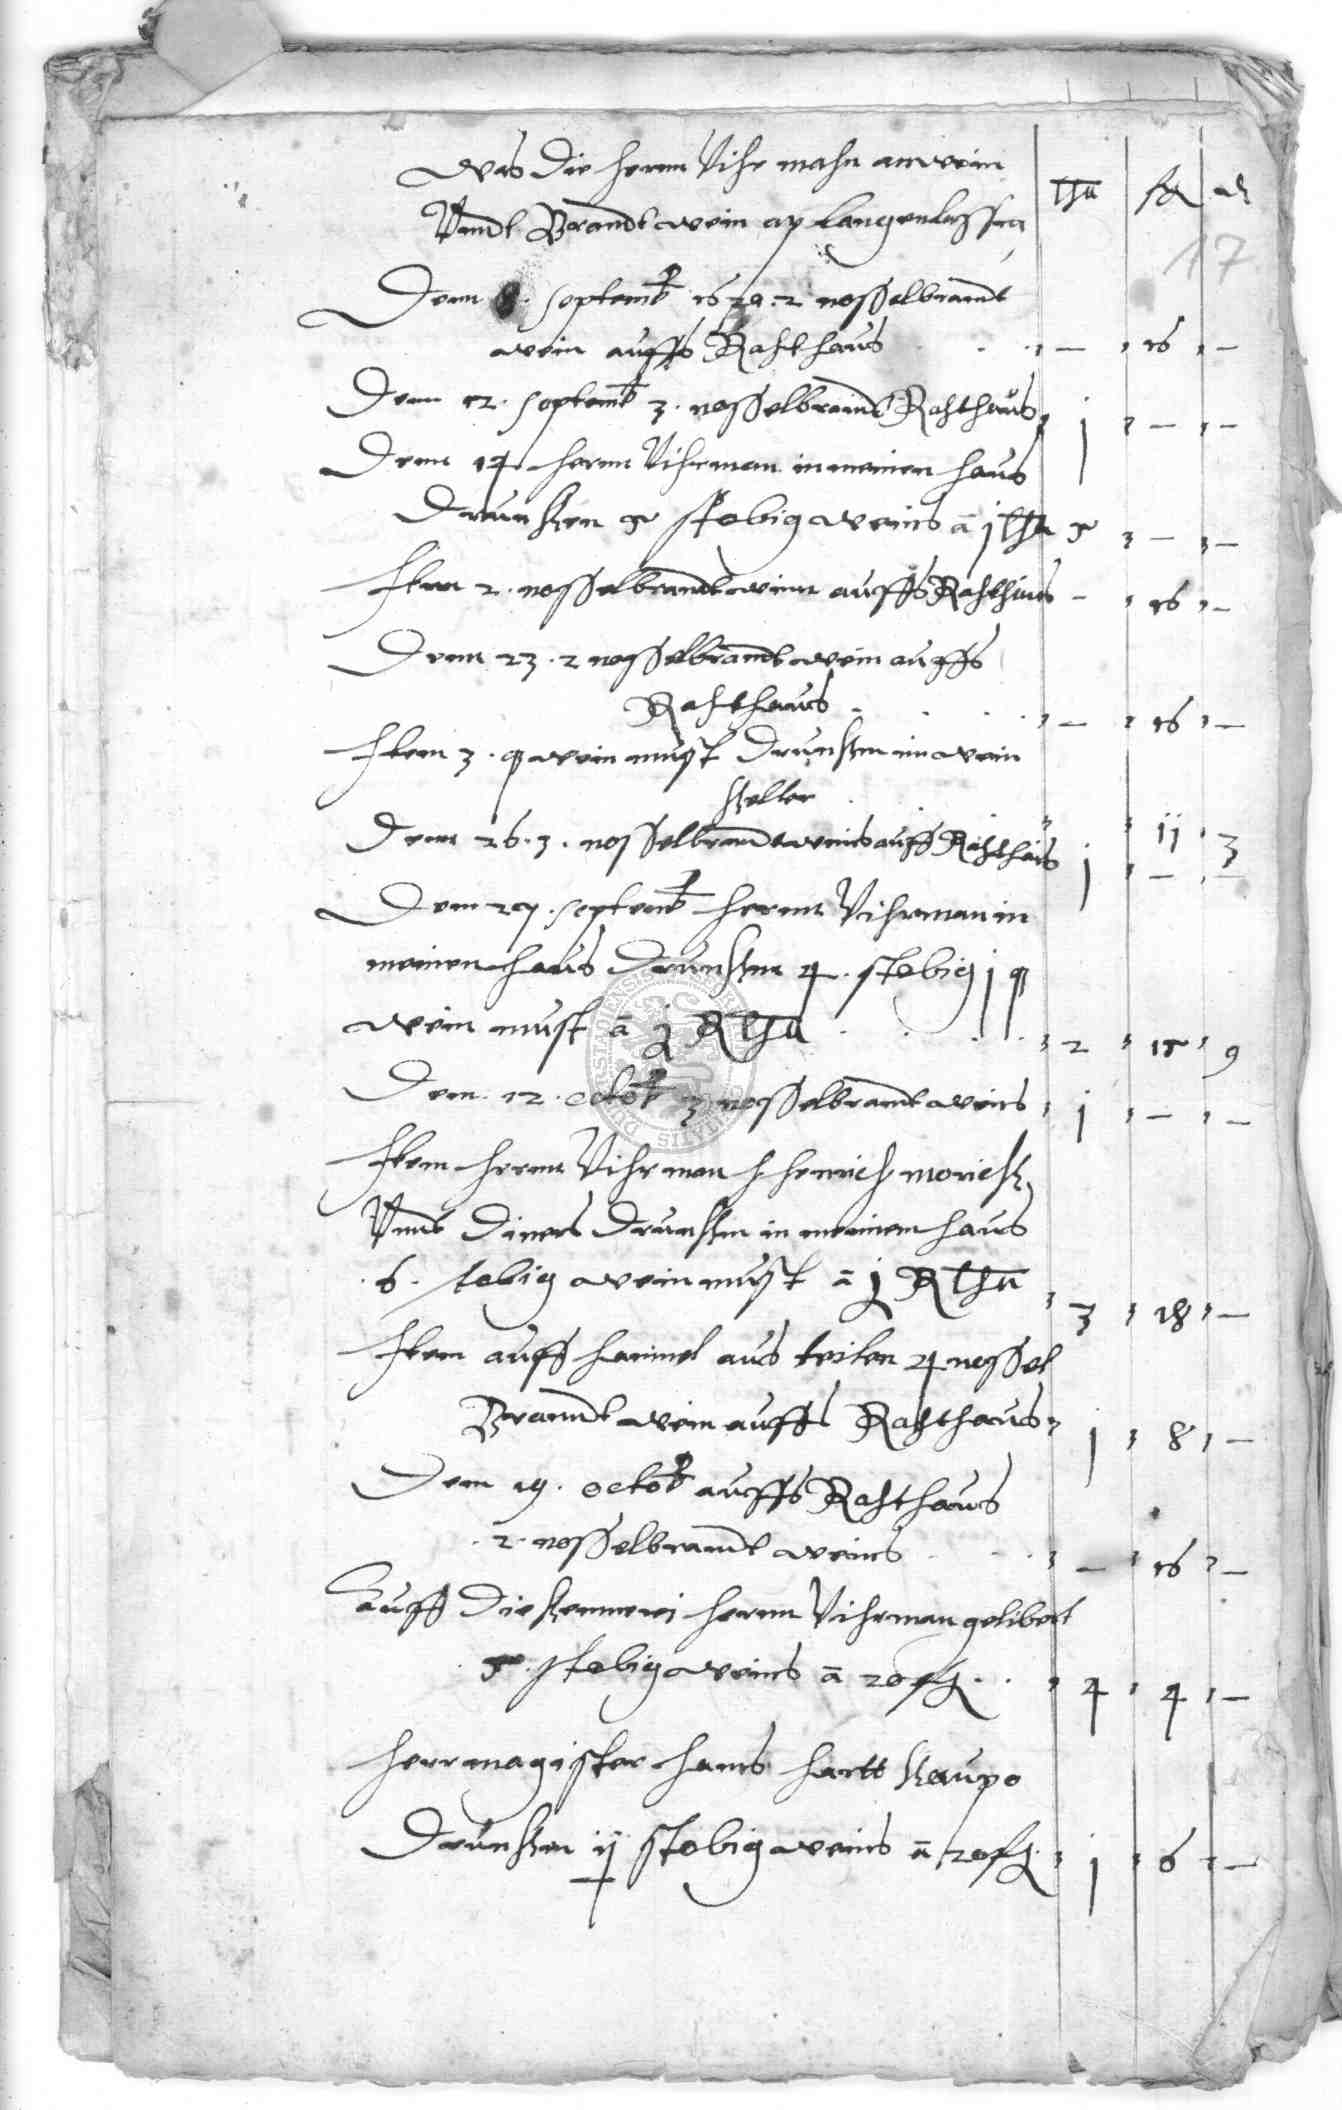 Was die herrn Vihr mahn an wein
Vnndt Brandt wein
Thll fll
17
Denn 8. Septemb 1629. 2 nosselbrandt
wein auffs Rahthaus — 16 —
Denn 12. Septemb 3. nosselbrandt Rahthaus j — —
Denn 14 herrn Vihrman in meinen haus
Drunken 5 stobig weins a j Thll 5 — —
Item 2. nosselbrandtwein auffs Rahthaus — 16 —
Denn 23. 2 nosselbrandtwein auffs
Rahthaus — 16 —
Item 3. q wein must Drunken im wein
keller ij 3
Denn 26. 3. nosselbrandtweins auff Rahthaus j — —
Denn 27. Septemb herrn Vihrman in
meinen haus Drunken 4. stobig j q
wein must a j RThll 2 15 9
Den 12. octob 3 nosselbrandtweins j — —
Item herrn Vihrman h henrich
Vnnd Diners Drunken in meinem haus
6. stobig wein must a j RThll 3 18 —
Item auffs hammel aus teilen 4 nossel
Branndt wein auffs Rahthaus j 8 —
Den 19. octob auffs Rahthaus
2. nosselbranndt weins — 16 —
Auff Die kemmeri herrn Vihrman gelibert
5. stobig weins a 20 fl 4 4 —
Herr magister hans hartt
Drunken ij stobig weins a 20 fl j 6 —